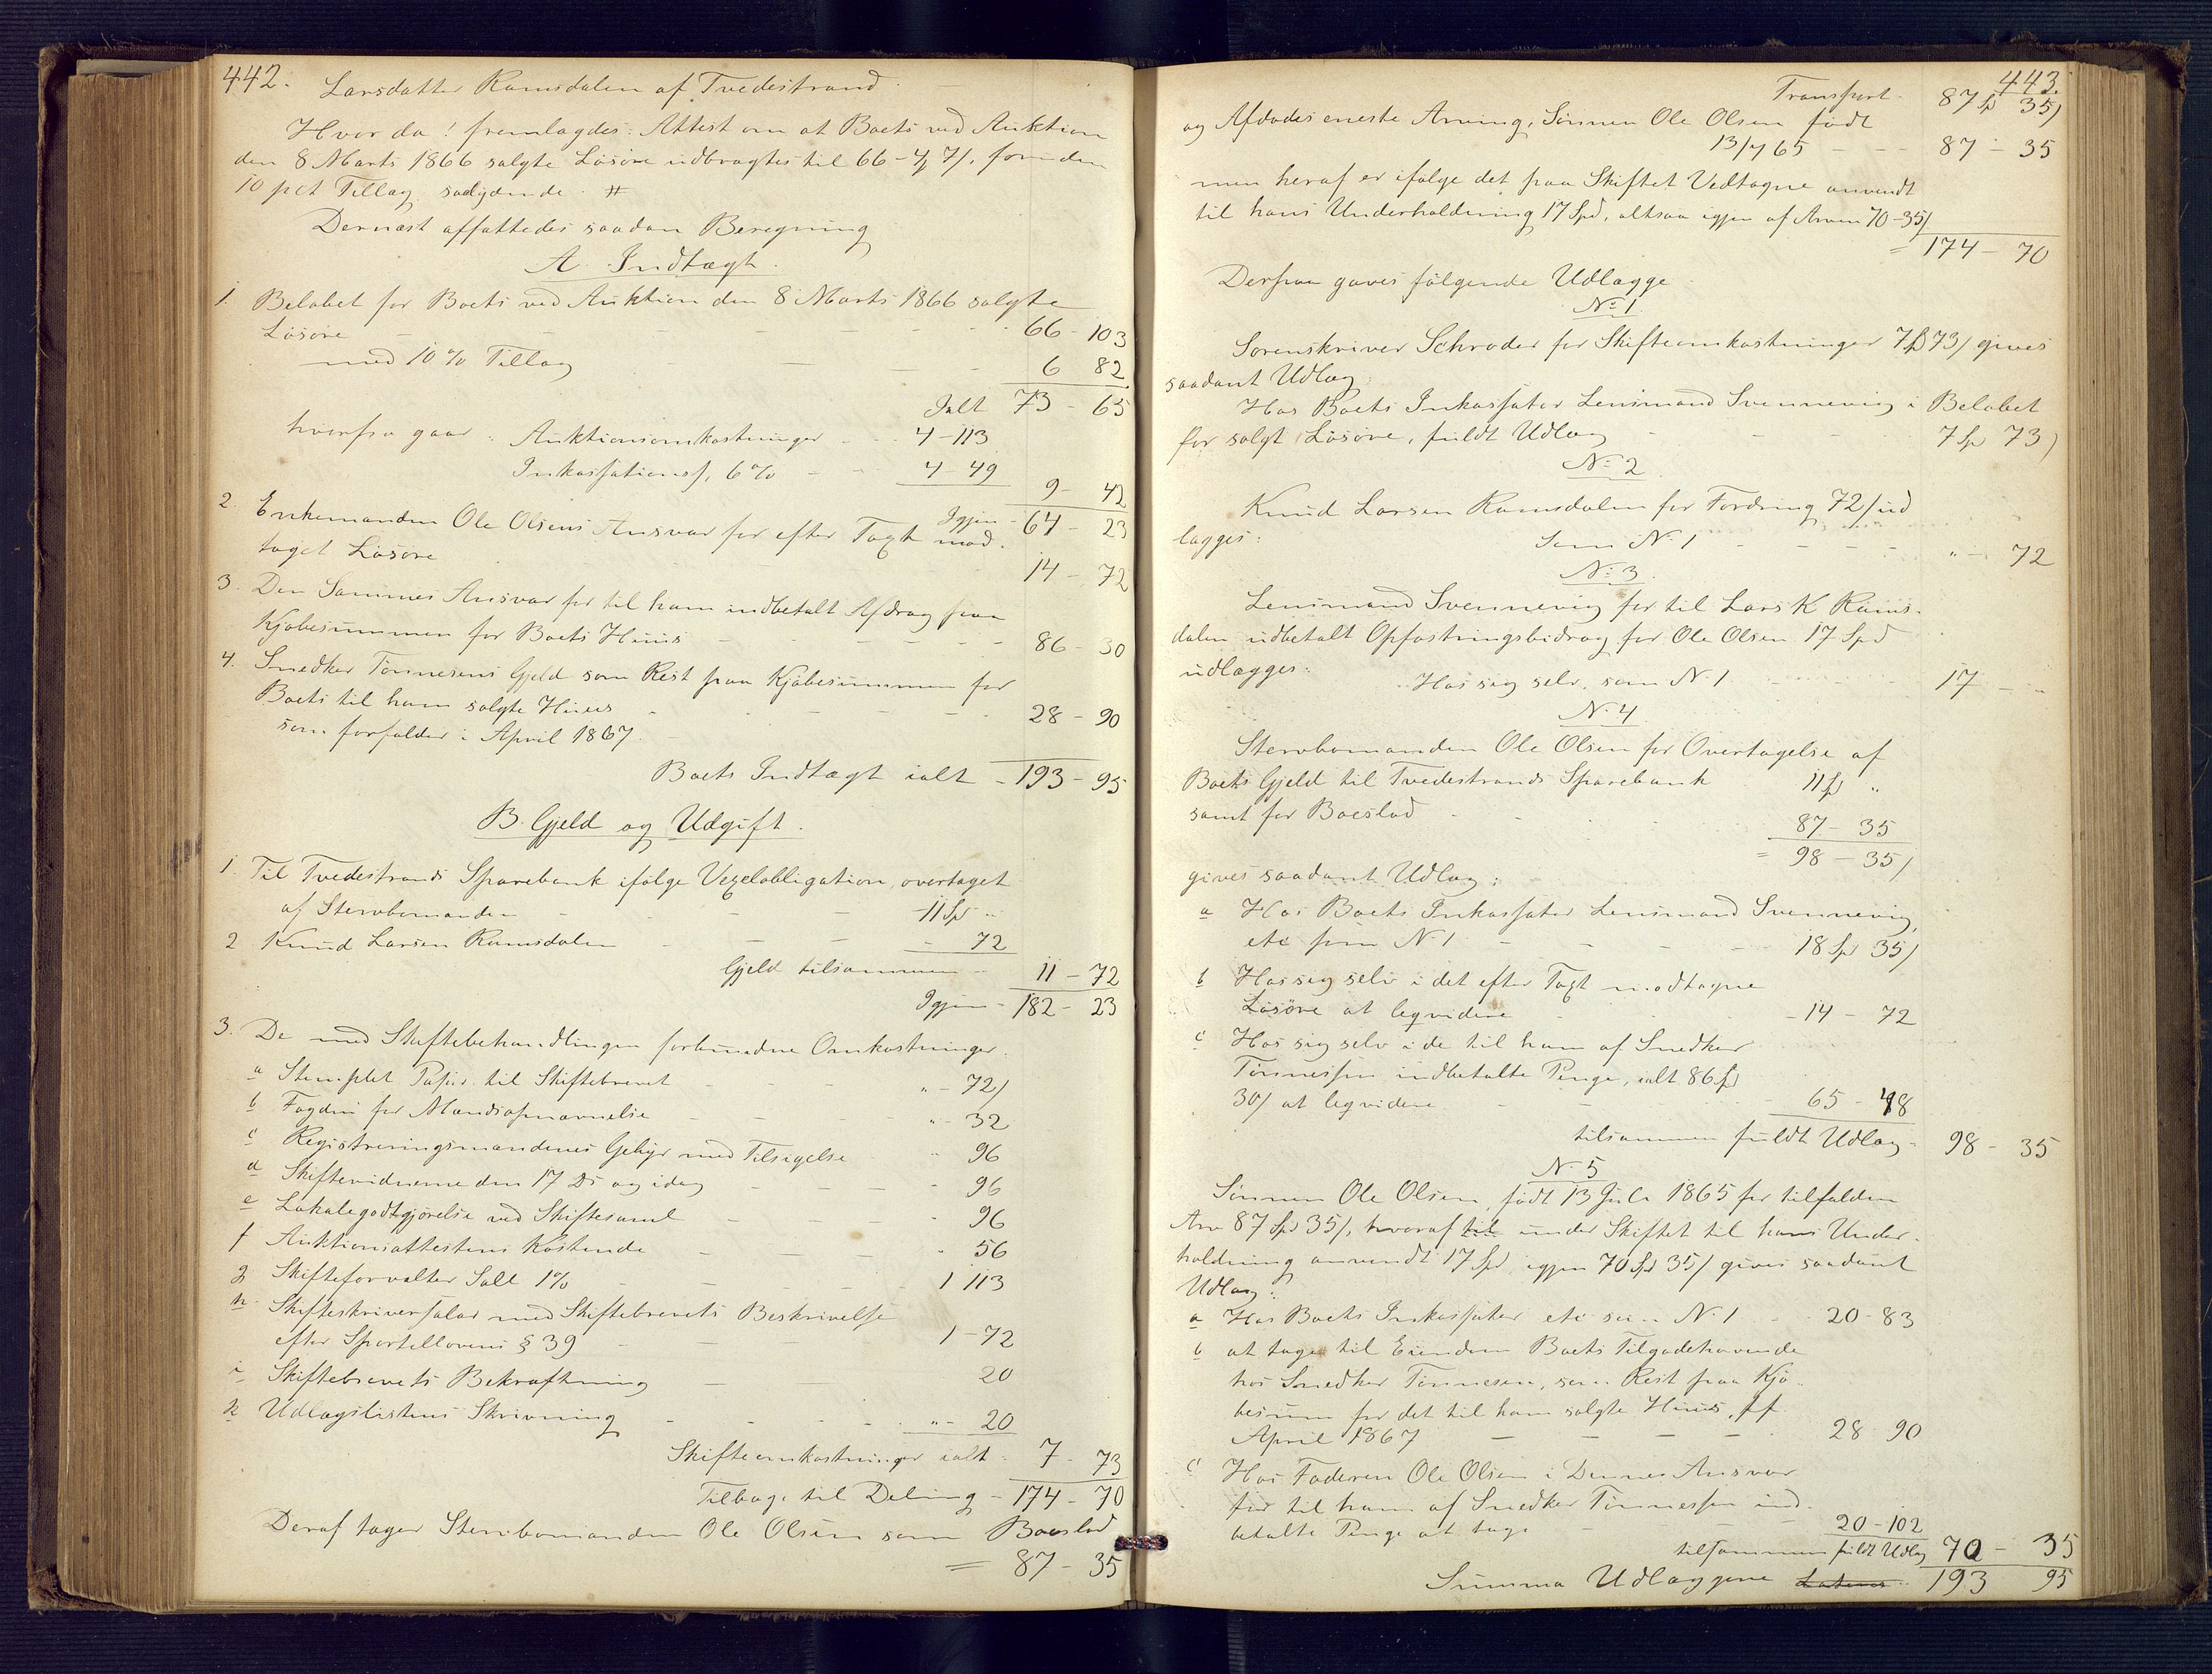 442.
Larsdatter Ramsdalen af Tvedestrand.
Hvor da: fremlagdes: Attest om at Boets ved Auktion
den 8 Marts 1866 solgte Løsøre udbragtes til 66 - 4 7/, foruden
10 pct Tillæg, saalydende. #
Dernæst affattedes saadan Beregning
A. Indtægt.
1. Beløbet for Boets ved Auktion den 8 Marts 1866 solgte
Løsøre - - - - 66 - 103
med 10% Tillæg - - - 6 82
Ialt 73 - 65
hvorfra gaar: Auktionsomkostninger - - 4 - 113
Inkassations, 6% - - 4 - 49
9 - 42
Igjen - 64 - 23
2. Enkemanden Ole Olsens Ansvar for efter Taxt mod-
taget Løsøre - - - 14 - 72
3. Den Sammes Ansvar for til ham indbetalt Afdrag paa
Kjøbesummen for Boets Huus - - - 86 - 30
4. Snedker Tønnesens Gjeld som Rest paa Kjøbesummen for
Boets til ham solgte Huus - - - 28 - 90
som forfalder i April 1867.
Boets Indtægt ialt - 193 - 95
B. Gjeld og Udgift.
1. Til Tvedestrands Sparebank ifølge Vexelobligation, overtaget
af Stervbomanden - - - 11 Spd "
2 Knud Larsen Ramsdalen - - - 72
Gjeld tilsammen - 11 - 72
Igjen - 182 - 23
3. De med Skiftebehandlingen forbundne Omkostninger:
a Stemplet Papir til Skiftebrevet - - " - 72/
b Fogden for Mandsopnævnelse - - " - 32
c Registreringsmændenes Gebyr med Tilsigelse " 96
d Skiftevidnerne den 17 Ds og idag - - - 96
e Lokalegodtgjørelse ved Skiftesaml - - - 96
f Auktionsattestens Kostende - - " 56
g Skifteforvalter Sall 1% - - - 1 113
h Skifteskriversalær med Skiftebrevets Beskrivelse
efter Sportellovens § 39 - - 1 - 72
i Skiftebrevets Bekræftning - - 20
k Udlægslistens Skrivning - - - " - 20
Skifteomkostninger ialt - 7 - 73
Tilbage til Deling - 174 - 70
Deraf tager Stervbomanden Ole Olsen som Boeslod
= 87 - 35
443.
Transport - 87 Sp 35/
og Afdødes eneste Arving, Sønnen Ole Olsen født
13/7 65 - - - 87 - 35
men heraf er ifølge det paa Skiftet Vedtagne anvendt
til hans Underholdning 17 Spd, altsaa igjen af Arven 70 - 35/
= 174 - 70
Derpaa gaves følgende Udlægge
No 1.
Sorenskriver Schrøder for Skifteomkostninger 7 Sp 73/ gives
saadant Udlæg:
Hos Boets Inkassator Lensmand Svennevig i Beløbet
for solgt Løsøre, fuldt Udlæg - - - 7 Sp 73/
No 2.
Knud Larsen Ramsdalen for Fordring 72/ ud
lægges:
Som No 1 - - - - " - 72
No 3.
Lensmand Svennevig for til Lars K Rams-
dalen udbetalt Opfostringsbidrag for Ole Olsen 17 Spd
udlægges:
Hos sig selv, som No 1 - - - 17 - "
No 4
Stervbomanden Ole Olsen for Overtagelse af
Boets Gjeld til Tvedestrands Sparebank 11 Sp "
samt for Boeslod - - - 87 - 35
= 98 - 35/
gives saadant Udlæg:
a Hos Boets Inkassator Lensmand Svennevig
etc som No 1 - - - 18 Spd 35/
b Hos sig selv i det efter Taxt modtagne
Løsøre at leqvidere - - 14 - 72
c Hos sig selv i de til ham af Snedker
Tønnessen indbetalte Penge, ialt 86 Sp
30/ at leqvidere - - 65 - 48
tilsammen fuldt Udlæg - 98 - 35
No 5
Sønnen Ole Olsen, født 13 Juli 1865 for tilfalden
Arv 87 Spd 35/, hvoraf til under Skiftet til hans Under-
holdning anvendt 17 Spd, igjen 70 Spd 35/ gives saadant
Udlæg:
a Hos Boets Inkassator etc som No 1 - - 20 - 83
b at tage til Eiendom Boets Tilgodehavende
hos Snedker Tønnesen, som Rest paa Kjø-
besum for det til ham solgte Huus, ff
April 1867 - - - - 28 90
c Hos Faderen Ole Olsen i Dennes Ansvar
for til ham af Snedker Tønnessen ind-
betalte Penge at tage - - 20 - 102
tilsammen fuldt Udlæg 70 - 35
Summa Udlæggene 193 95